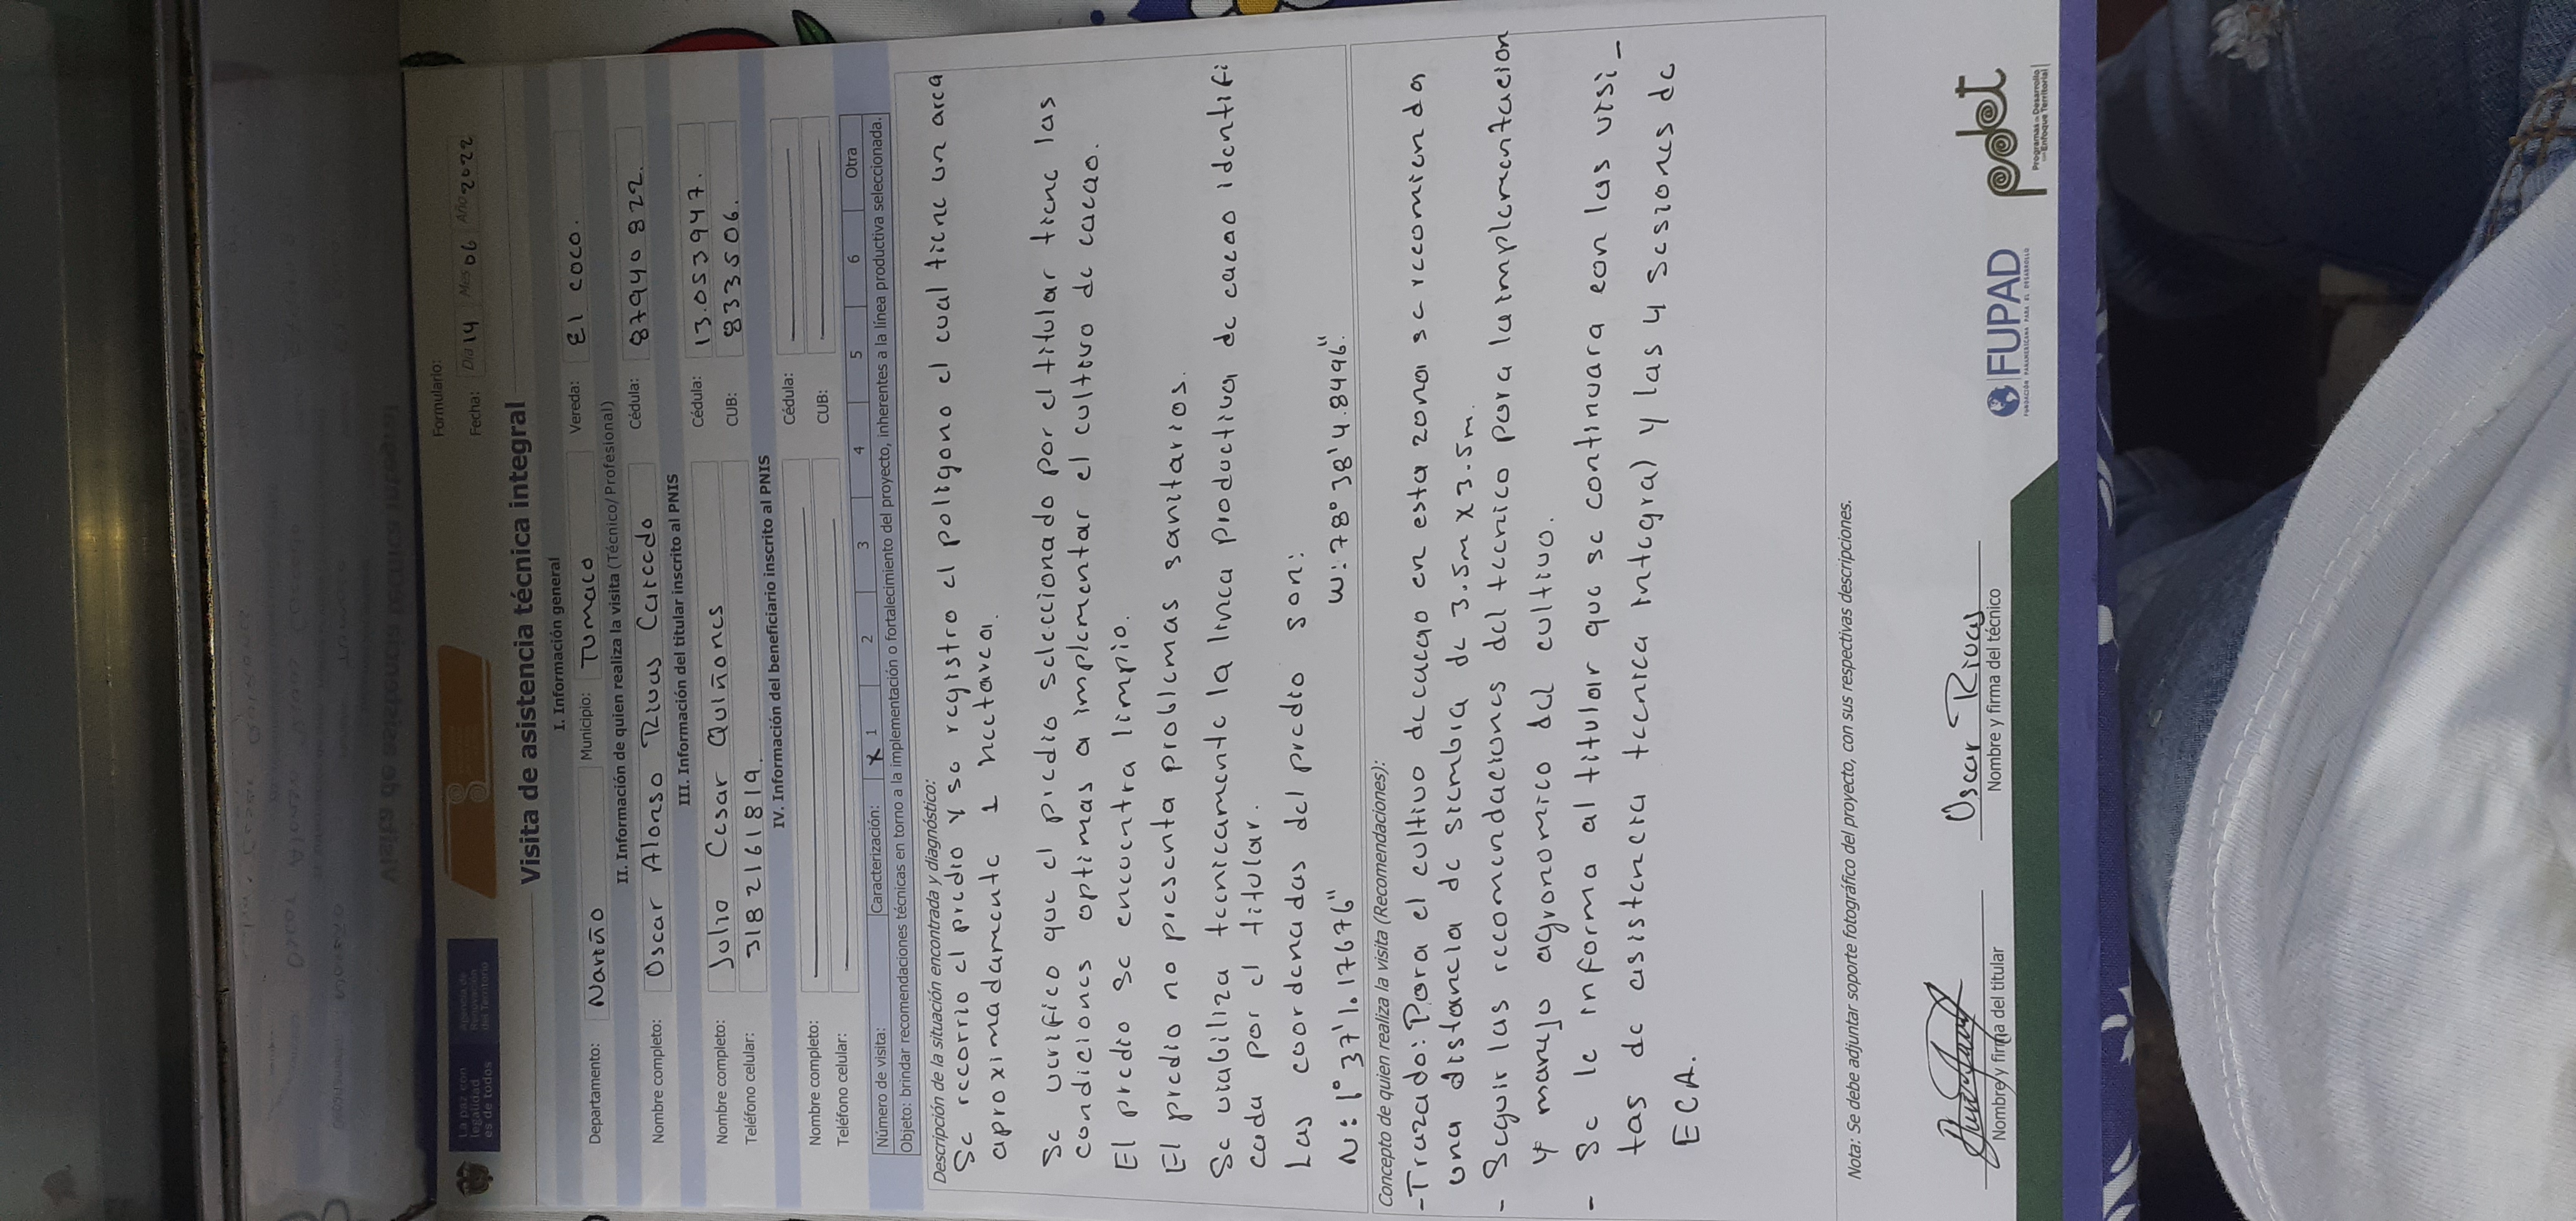 La paz con
legalidad
es de todos
Agencia de
Renovación
del Territorio
Formulario:
Fecha: Día 14 Mes 06 Año 2022
Visita de asistencia técnica integral
I. Información general
Departamento: Nariño Municipio: Tumaco Vereda: El coco.
II. Información de quien realiza la visita (Técnico/Profesional)
Nombre completo: Oscar Alonso Rivas Caicedo Cédula: 87940822.
III. Información del titular inscrito al PNIS
Nombre completo: Julio Cesar Quiñones Cédula: 13.053947.
Teléfono celular: 3182161819. CUB: 833506.
IV. Información del beneficiario inscrito al PNIS
Nombre completo: Cédula:
Teléfono celular: CUB:
Número de visita: Caracterización: X 1 2 3 4 5 6 Otra
Objeto: brindar recomendaciones técnicas en torno a la implementación o fortalecimiento del proyecto, inherentes a la línea productiva seleccionada.
Descripción de la situación encontrada y diagnóstico:
Se recorrio el predio y se registro el poligono el cual tiene un area
aproximadamente 1 hectarea.
Se verifico que el predio seleccionado por el titular tiene las
condiciones optimas a implementar el cultivo de cacao.
El predio se encuentra limpio.
El predio no presenta problemas sanitarios.
Se viabiliza tecnicamente la linea productiva de cacao identifi
cada por el titular.
Las coordenadas del predio son:
N: 1° 37' 1.17676" W: 78° 38' 4.8496".
Concepto de quien realiza la visita (Recomendaciones):
- Trazado: Para el cultivo de cacao en esta zona se recomienda
una distancia de siembra de 3.5m x 3.5m.
- Seguir las recomendaciones del tecnico para la implementacion
y manejo agronomico del cultivo.
- Se le informa al titular que se continuara con las visi-
tas de asistencia tecnica integral y las 4 sesiones de
ECA.
Nota: Se debe adjuntar soporte fotográfico del proyecto, con sus respectivas descripciones.
Oscar Rivas
Nombre y firma del titular Nombre y firma del técnico
FUPAD
FUNDACIÓN PANAMERICANA PARA EL DESARROLLO
pdet
Programas de Desarrollo
con Enfoque Territorial